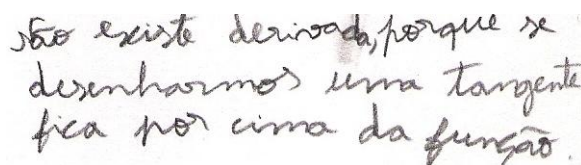 não existe derivada, porque se
desenharmos uma tangente
fica por cima da função.